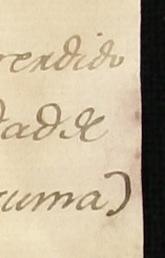 rendido
dad de
cuma)